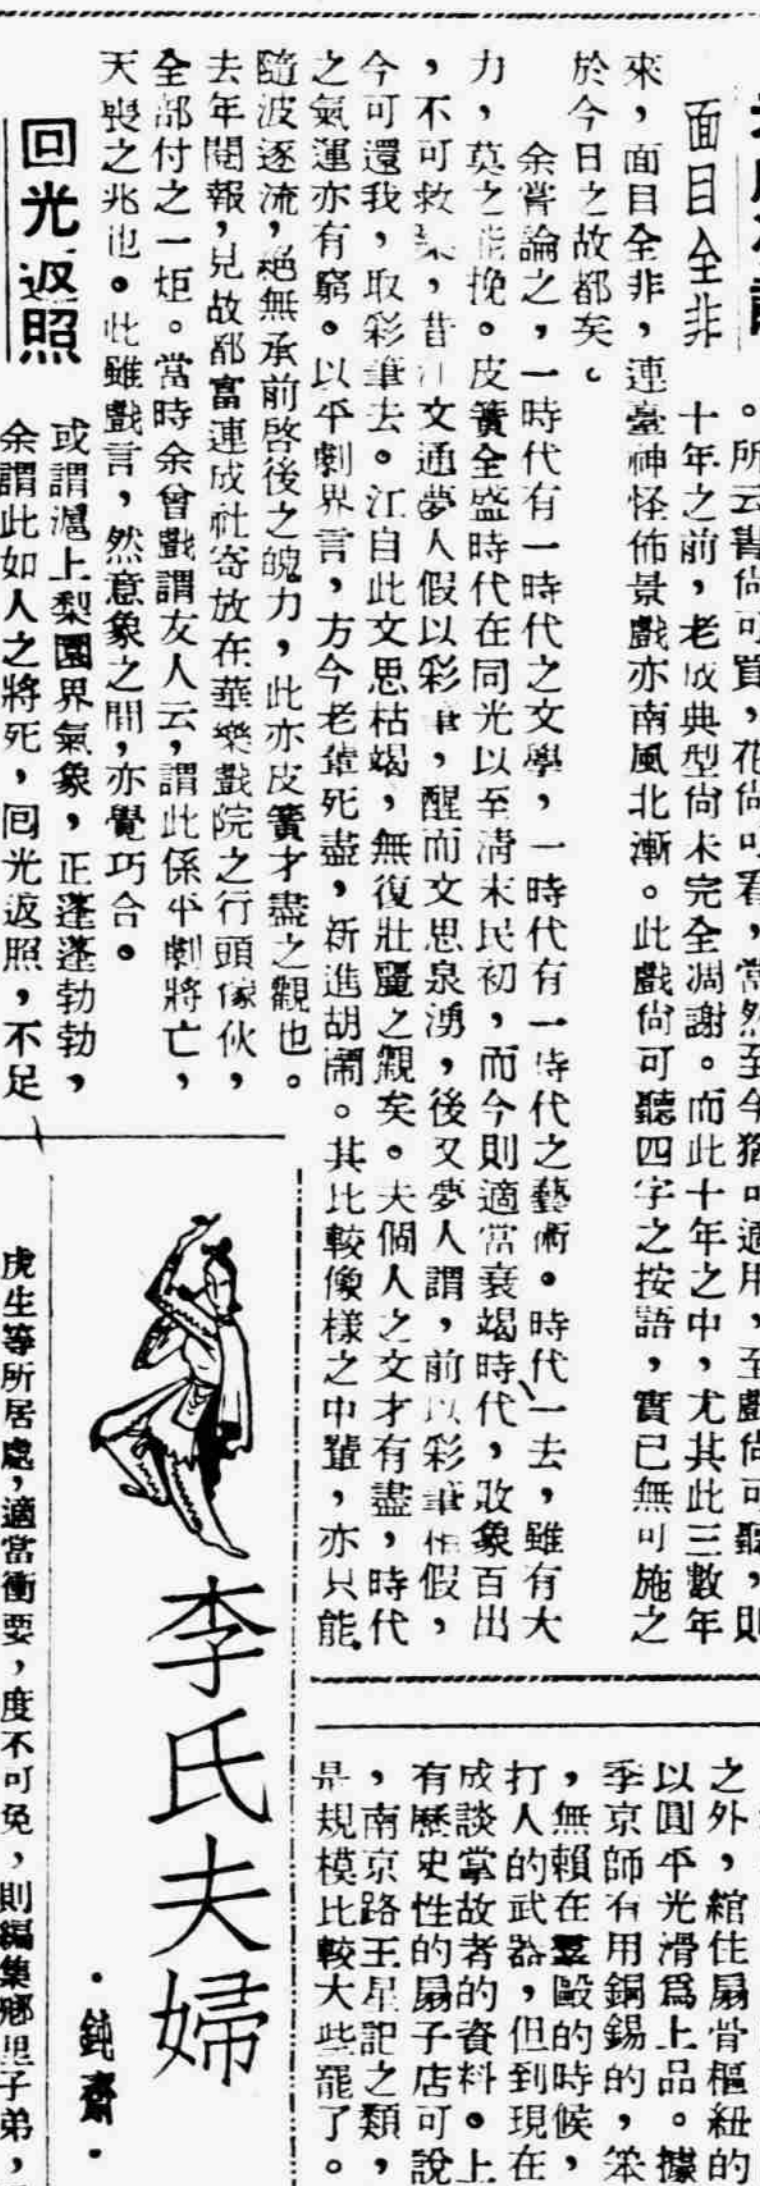 面目全非
。所云書尙可買，花尙可看，當然至今猶可適用，至戲尙可聽，則
十年之前，老成典型尙未完全凋謝。而此十年之中，尤其此三數年
來，面目全非，連臺神怪佈景戲亦南風北漸。此戲尙可聽四字之按語，實已無可施之
於今日之故都矣。
余嘗論之，一時代有一時代之文學，一時代有一時代之藝術。時代一去，雖有大
力，莫之能挽。皮簧全盛時代在同光以至淸末民初，而今則適當衰竭時代，敗象百出
，不可救藥，昔江文通夢人假以彩筆，醒而文思泉湧，後又夢人謂，前以彩筆相假，
今可還我，取彩筆去。江自此文思枯竭，無復壯麗之觀矣。夫個人之文才有盡，時代
之氣運亦有窮。以平劇界言，方今老輩死盡，新進胡鬧。其比較像樣之中輩，亦只能
隨波逐流，絕無承前啓後之魄力，此亦皮簧才盡之觀也。
去年閱報，見故都富連成社寄放在華樂戲院之行頭傢伙，
全部付之一炬。當時余曾戲謂友人云，謂此係平劇將亡，
天喪之兆也。此雖戲言，然意象之間，亦覺巧合。
回光返照
或謂滬上梨園界氣象，正蓬蓬勃勃，
余謂此如人之將死，囘光返照，不足
之外，綰住扇骨樞紐的
以圓平光滑爲上品。據
季京師有用銅錫的，笨
，無賴在羣毆的時候，
打人的武器，但到現在
成談掌故者的資料。上
有歷史性的扇子店可說
，南京路王星記之類，
是規模比較大些罷了。
李氏夫婦
·鈍齋·
虎生等所居處，適當衝要，度不可免，則編集鄉里子弟，